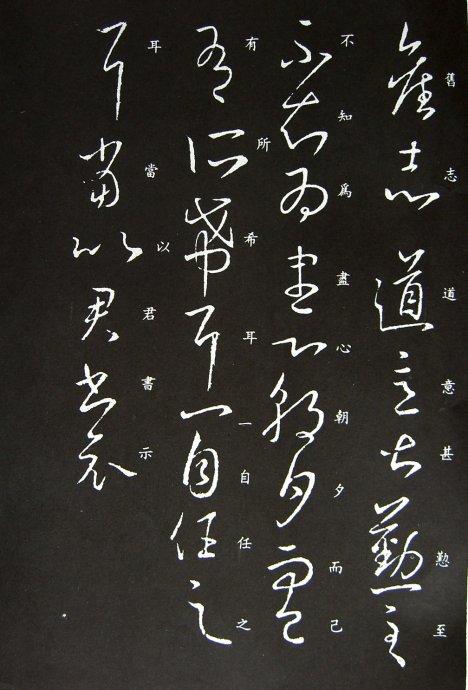 舊志道意甚懃至
不知爲盡心朝夕而己
有所希耳一自任之
耳當以君書示